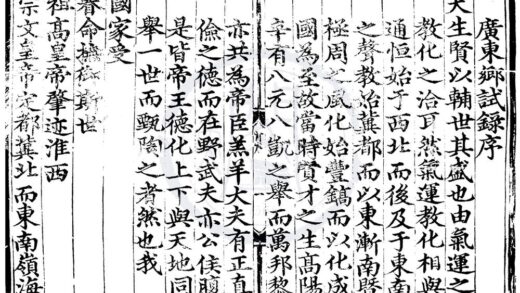 廣東鄉試錄序
天生賢以輔世其盛也由氣運之
教化之洽可然氣運教化相與
通恒始于西北而後及于東南
之聲教洽冀都而以東漸南暨
極周之風化始豐鎬而以化成
國為至故當時賢才之生高陽
辛有八元八凱之舉而萬邦黎
亦共為帝臣羔羊大夫有正直
儉之德而在野武夫亦公侯腹
是皆帝王德化上下與天地同
舉一世而甄陶之者然也我
國家受
眷命撫御斯世
祖高皇帝肇迹淮西
宗文皇帝定都冀北而東南嶺海